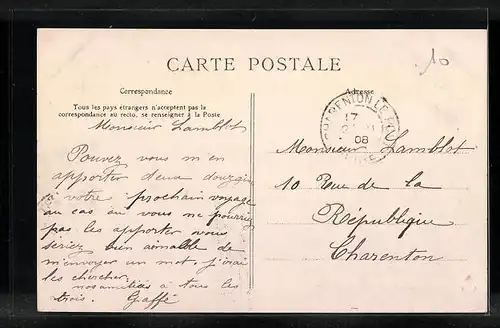 10
CARTE POSTALE
Correspondance
Tous les pays étrangers n'acceptent pas la
correspondance au recto, se renseigner à la Poste
Monsieur Lamblot
Pouvez vous m en
apporter deux douzaine
à votre prochain voyage
au cas ou vous ne pourriez
pas les apporter vous
seriez bien aimable de
m'envoyer un mot, j'irai
les chercher.
nos amitiés à tous les
trois. Gaffé
Adresse
CHARENTON LE
17
08
Monsieur Lamblot
10 Rue de la
République
Charenton